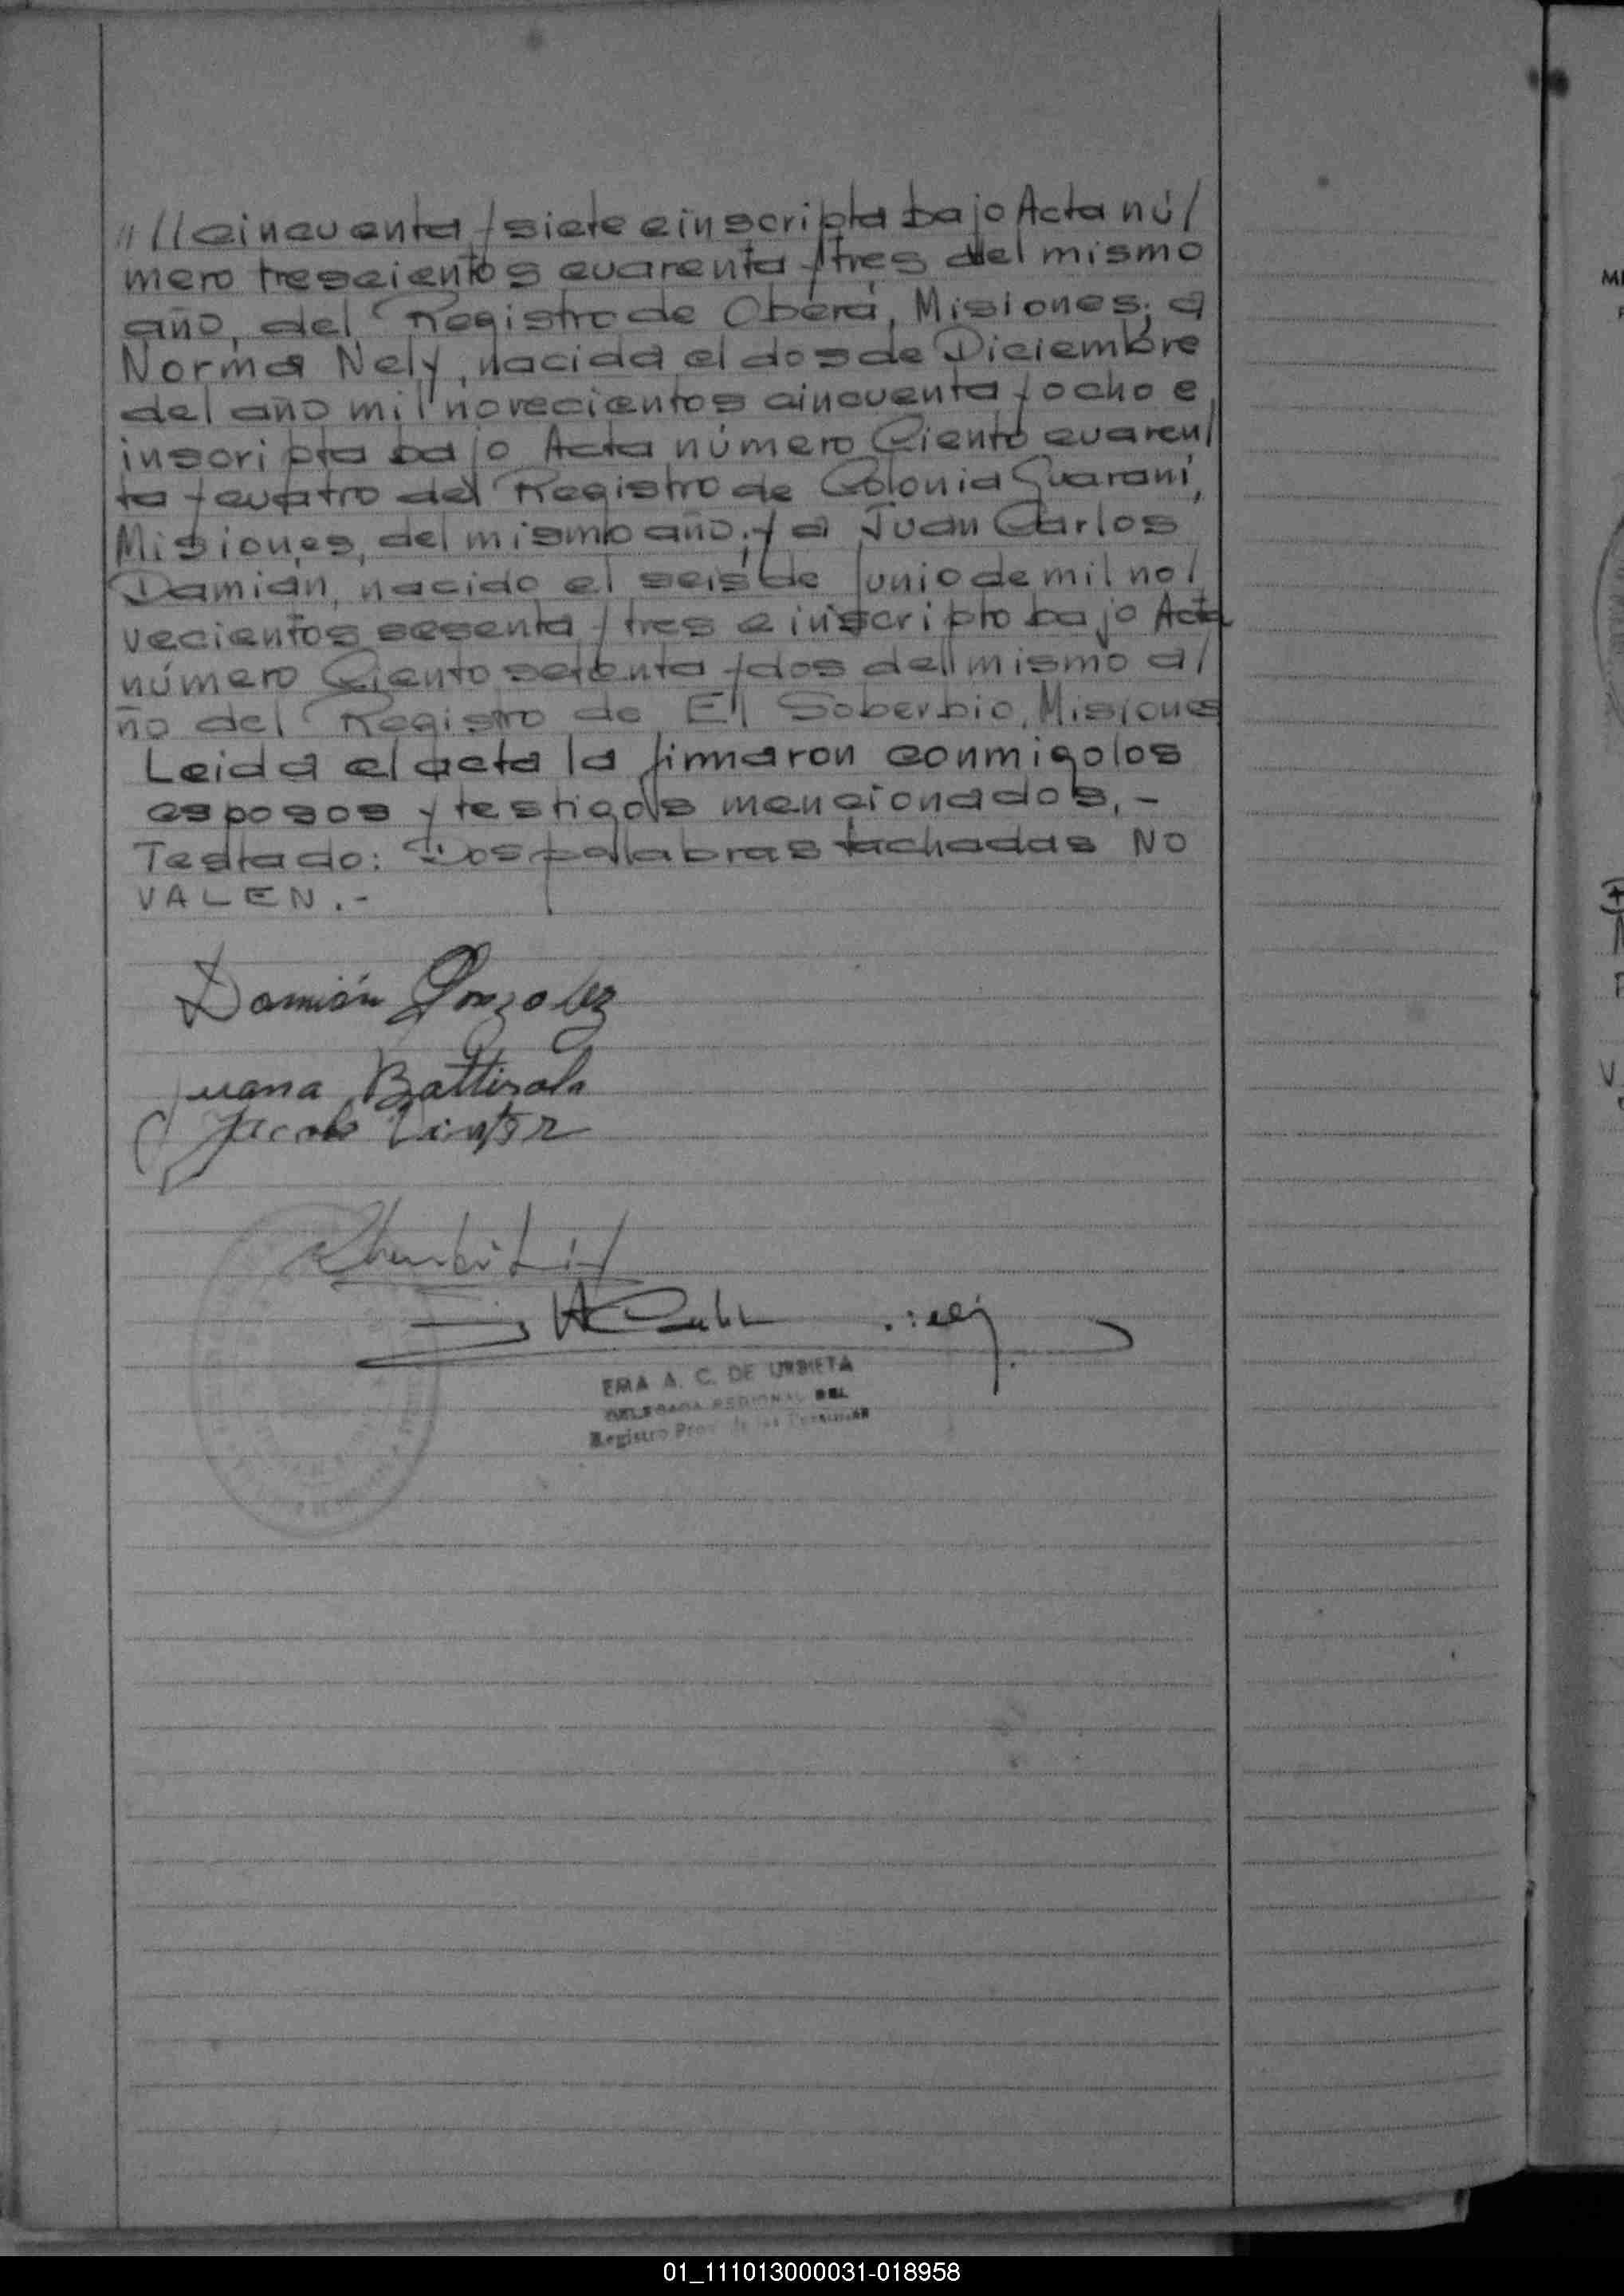 "//cincuenta y siete e inscripta bajo Acta nú/
mero trescientos cuarenta y tres del mismo
año, del Registro de Oberá, Misiones; a
Norma Nely, nacida el dos de Diciembre
del año mil novecientos cincuenta y ocho e
inscripta bajo Acta número Ciento cuaren/
ta y cuatro del Registro de Colonia Guaraní,
Misiones, del mismo año; y a Juan Carlos
Damián, nacido el seis de junio de mil no/
vecientos sesenta y tres e inscripto bajo Acta
número Ciento setenta y dos del mismo a/
ño del Registro de El Soberbio, Misiones
Leida el acta la firmaron conmigo los
esposos y testigos mencionados.-
Testado: Dos palabras tachadas NO
VALEN.-
Damián Gonzalez
Juana Battirola
Jacob
EMA A. C. DE URBIETA
DELEGADA REGIONAL DEL
Registro Prov. de las Personas
01_111013000031-018958